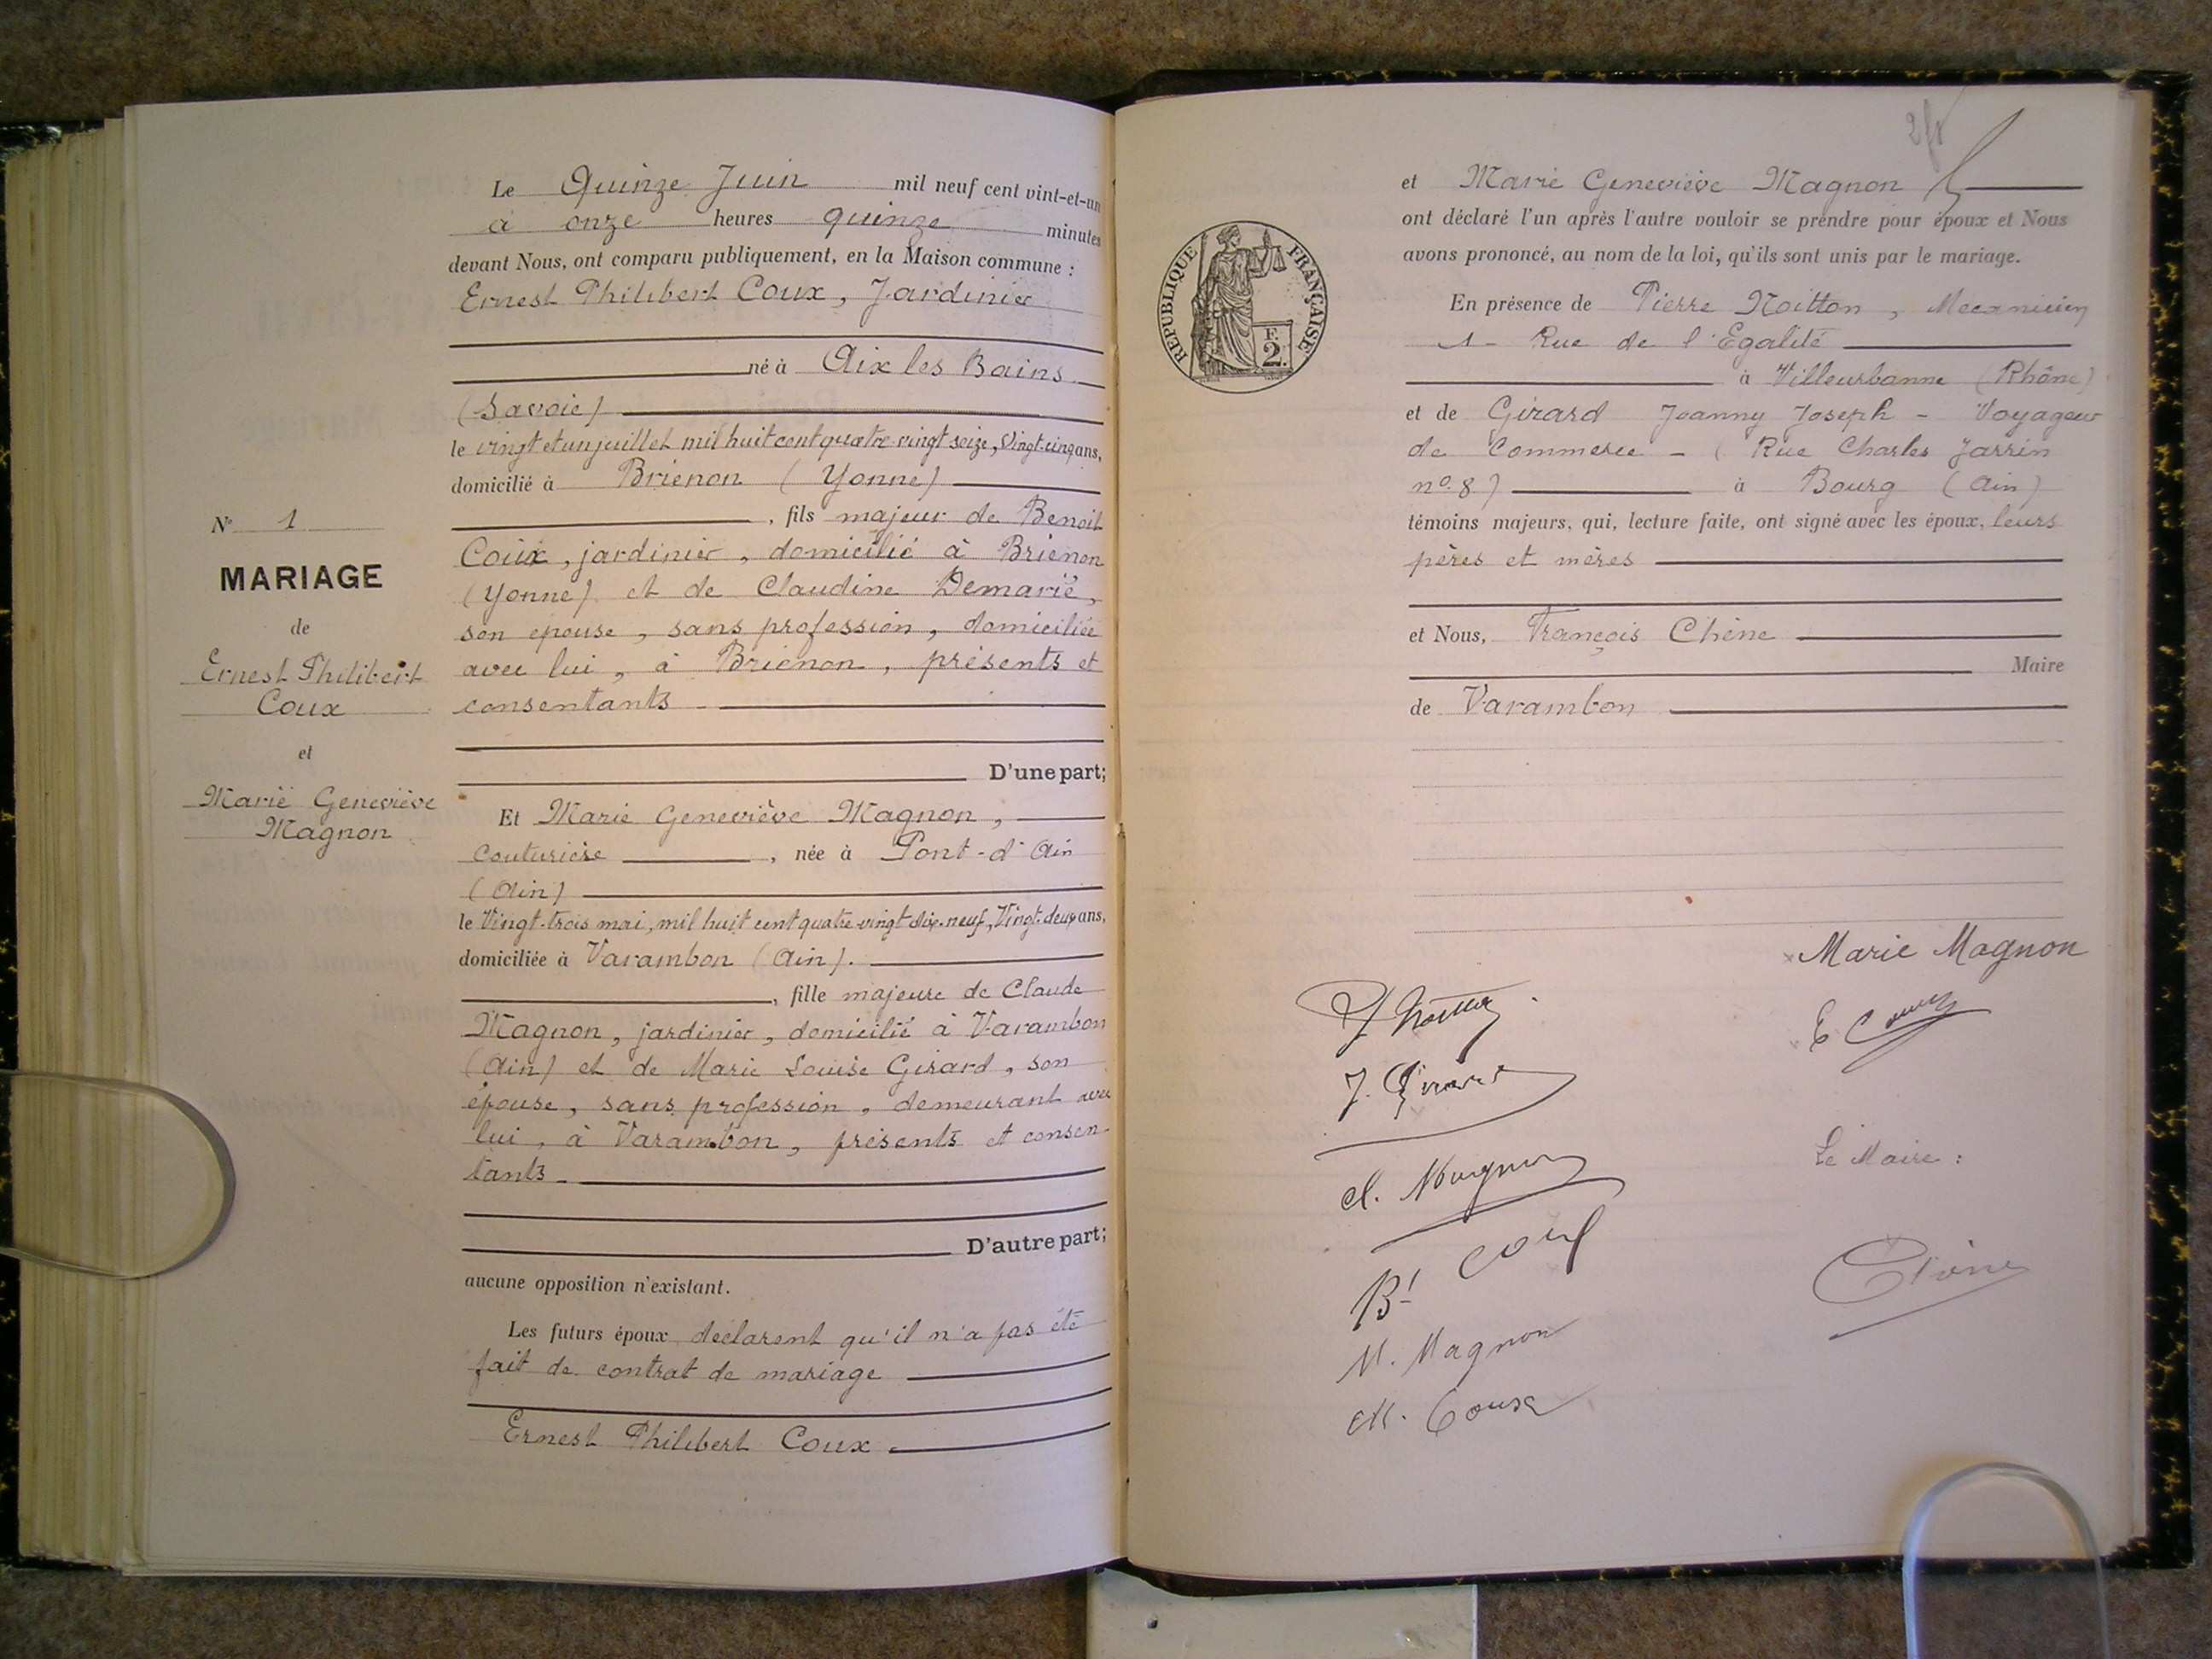 N° 1
MARIAGE
de
Ernest Philibert
Coux
et
Marie Geneviève
Magnon
Le Quinze Juin mil neuf cent vint-et-un
à onze heures quinze minutes
devant Nous, ont comparu publiquement, en la Maison commune :
Ernest Philibert Coux, Jardinier
né à Aix les Bains
(Savoie)
le vingt et un juillet mil huit cent quatre vingt seize, Vingt-cinq ans,
domicilié à Brienon (Yonne)
, fils majeur de Benoit
Coux, jardinier, domicilié à Brienon
(Yonne) et de Claudine Demarie,
son épouse, sans profession, domiciliée
avec lui, à Brienon, présents et
consentants
D'une part;
Et Marie Geneviève Magnon,
couturière, née à Pont-d'Ain
(Ain)
le Vingt-trois mai, mil huit cent quatre-vingt dix-neuf, Vingt-deux ans,
domiciliée à Varambon (Ain).
, fille majeure de Claude
Magnon, jardinier, domicilié à Varambon
(Ain) et de Marie Louise Girard, son
épouse, sans profession, demeurant avec
lui, à Varambon, présents et consen-
tants
D'autre part;
aucune opposition n'existant.
Les futurs époux déclarent qu'il n'a pas été
fait de contrat de mariage
Ernest Philibert Coux
et Marie Geneviève Magnon
ont déclaré l'un après l'autre vouloir se prendre pour époux et Nous
avons prononcé, au nom de la loi, qu'ils sont unis par le mariage.
REPUBLIQUE FRANÇAISE
F.
2.
En présence de Pierre Noitton, Mecanicien
1 - Rue de l'Egalité
à Villeurbanne (Rhône)
et de Girard Joanny Joseph - Voyageur
de Commerce - (Rue Charles Jarrin
n° 8) à Bourg (Ain)
témoins majeurs, qui, lecture faite, ont signé avec les époux, leurs
pères et mères
et Nous, François Chêne
Maire
de Varambon
Marie Magnon
E Coux
J. Girard
Cl. Magnon
Bt Coux
M. Magnon
M. Coux
Le Maire :
Chêne